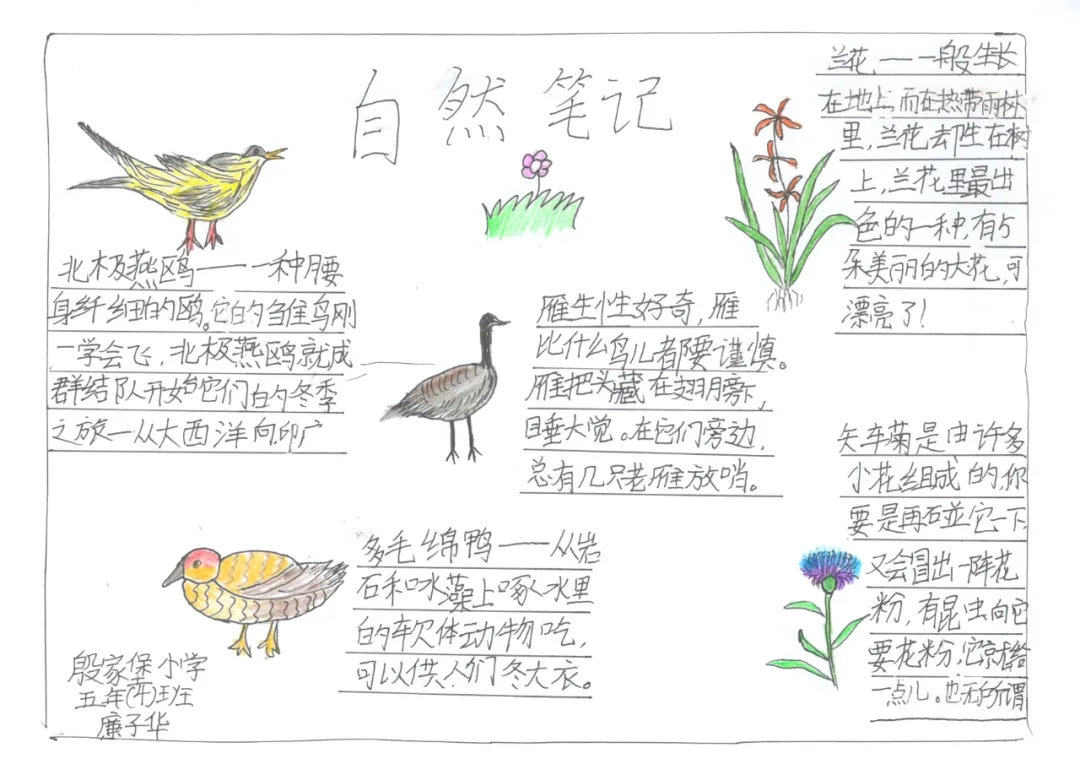 自然笔记
北极燕鸥——一种腰
身纤细的鸥。它的雏鸟刚
一学会飞，北极燕鸥就成
群结队开始它们的冬季
之旅—从大西洋向印广
雁生性好奇，雁
比什么鸟儿都要谨慎。
雁把头藏在翅膀下，
睡大觉。在它们旁边，
总有几只老雁放哨。
兰花，——一般生长
在地上，而在热带雨林
里，兰花却生在树
上，兰花里最出
色的一种，有5
朵美丽的大花，可
漂亮了！
多毛绵鸭——从岩
石和水藻上啄水里
的软体动物吃，
可以供人们冬大衣。
矢车菊是由许多
小花组成的，你
要是再碰它一下，
又会冒出一阵花
粉，有昆虫向它
要花粉，它就给
一点儿。也无所谓
殷家堡小学
五年班
廉子华